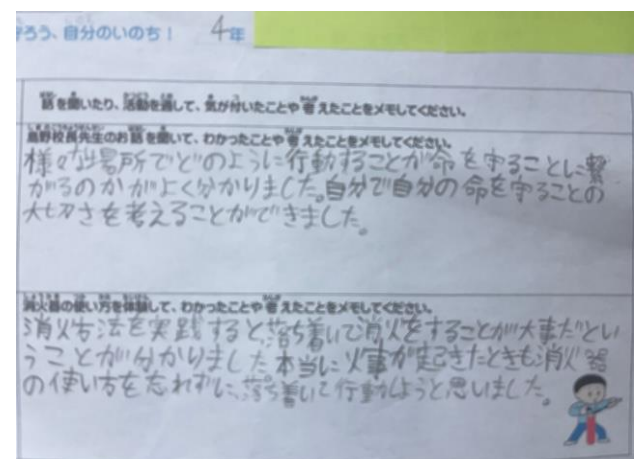 守ろう、自分のいのち! 4年
話を聞いたり、活動を通して、気が付いたことや考えたことをメモしてください。
島野校長先生のお話を聞いて、わかったことや考えたことをメモしてください。
様々な場所でどのように行動することが命を守ることに繋
がるのかがよく分かりました。自分で自分の命を守ることの
大切さを考えることができました。
消火器の使い方を体験して、わかったことや考えたことをメモしてください。
消火方法を実践すると、落ち着いて消火をすることが大事だとい
うことが分かりました。本当に火事が起きたときも消火器
の使い方を忘れずに、落ち着いて行動しようと思いました。